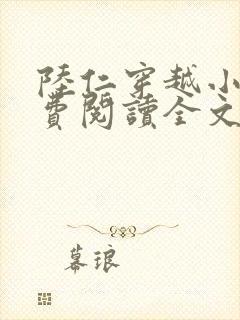 陸仁穿越小
費閱讀全文
暮琅